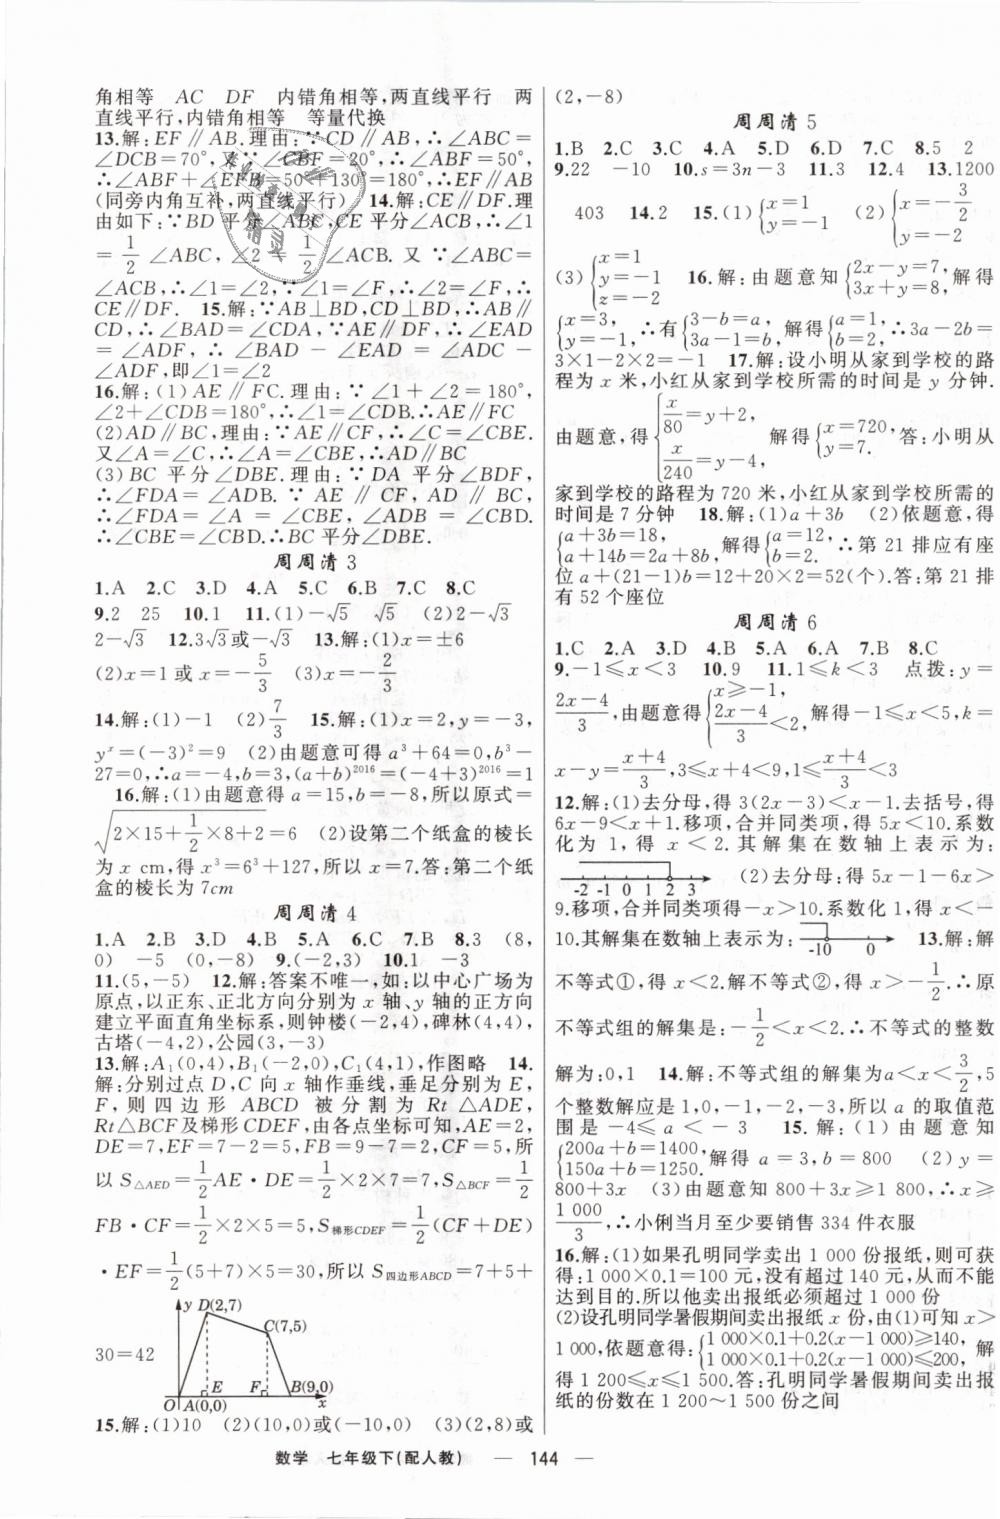 角相等 AC DF 内错角相等,两直线平行 两
直线平行,内错角相等 等量代换
13.解:EF∥AB.理由:∵CD∥AB,∴∠ABC=
∠DCB=70°,又∵∠CBF=20°,∴∠ABF=50°,
∴∠ABF+∠EFB=50°+130°=180°,∴EF∥AB
(同旁内角互补,两直线平行) 14.解:CE∥DF.理
由如下:∵BD 平分∠ABC,CE 平分∠ACB,∴∠1
=1/2∠ABC,∠2=1/2∠ACB.又∵∠ABC=
∠ACB,∴∠1=∠2,∵∠1=∠F,∴∠2=∠F,∴
CE∥DF. 15.解:∵AB⊥BD,CD⊥BD,∴AB∥
CD,∴∠BAD=∠CDA,∵AE∥DF,∴∠EAD
=∠ADF,∴∠BAD-∠EAD=∠ADC-
∠ADF,即∠1=∠2
16.解:(1)AE∥FC.理由:∵∠1+∠2=180°,
∠2+∠CDB=180°,∴∠1=∠CDB.∴AE∥FC
(2)AD∥BC,理由:∵AE∥CF,∴∠C=∠CBE.
又∠A=∠C,∴∠A=∠CBE,∴AD∥BC
(3)BC 平分∠DBE.理由:∵DA 平分∠BDF,
∴∠FDA=∠ADB.∵AE∥CF,AD∥BC,
∴∠FDA=∠A=∠CBE,∠ADB=∠CBD.
∴∠CBE=∠CBD.∴BC平分∠DBE.
周周清3
1.A 2.C 3.D 4.A 5.A 6.B 7.C 8.C
9.2 25 10.1 11.(1)-√5 √5 (2)2-√3
2-√3 12.3√3或-√3 13.解:(1)x=±6
(2)x=1或x=-5/3 (3)x=-2/3
14.解:(1)-1 (2)7/3 15.解:(1)x=2,y=-3,
yˣ=(-3)²=9 (2)由题意可得a³+64=0,b³-
27=0,∴a=-4,b=3,(a+b)²⁰¹⁶=(-4+3)²⁰¹⁶=1
16.解:(1)由题意得a=15,b=-8,所以原式=
√(2×15+1/2×8+2)=6 (2)设第二个纸盒的棱长
为x cm,得x³=6³+127,所以x=7.答:第二个纸
盒的棱长为7cm
周周清4
1.A 2.B 3.D 4.B 5.A 6.C 7.B 8.3 (8,
0) -5 (0,-8) 9.(-2,3) 10.1 -3
11.(5,-5) 12.解:答案不唯一,如:以中心广场为
原点,以正东、正北方向分别为x轴、y轴的正方向
建立平面直角坐标系,则钟楼(-2,4),碑林(4,4),
古塔(-4,2),公园(3,-3)
13.解:A₁(0,4),B₁(-2,0),C₁(4,1),作图略 14.
解:分别过点D,C向x轴作垂线,垂足分别为E,
F,则四边形ABCD被分割为Rt△ADE,
Rt△BCF及梯形CDEF,由各点坐标可知,AE=2,
DE=7,EF=7-2=5,FB=9-7=2,CF=5,所
以S△AED=1/2AE·DE=1/2×2×7=7,S△BCF=1/2
FB·CF=1/2×2×5=5,S梯形CDEF=1/2(CF+DE)
·EF=1/2(5+7)×5=30,所以S四边形ABCD=7+5+
30=42
y D(2,7)
C(7,5)
E F B(9,0)
O A(0,0) x
15.解:(1)10 (2)(10,0)或(-10,0) (3)(2,8)或
(2,-8)
周周清5
1.B 2.C 3.C 4.A 5.D 6.D 7.C 8.5 2
9.22 -10 10.s=3n-3 11.3 12.4 13.1200
403 14.2 15.(1){x=1 y=-1 (2){x=-3/2 y=-2
(3){x=1 y=-1 z=-2 16.解:由题意知{2x-y=7, 3x+y=8,解得
{x=3, y=-1,∴有{3-b=a, 3a-1=b,解得{a=1, b=2,∴3a-2b=
3×1-2×2=-1 17.解:设小明从家到学校的路
程为x米,小红从家到学校所需的时间是y分钟.
由题意,得{x/80=y+2, x/240=y-4,解得{x=720, y=7.答:小明从
家到学校的路程为720米,小红从家到学校所需的
时间是7分钟 18.解:(1)a+3b (2)依题意,得
{a+3b=18, a+14b=2a+8b,解得{a=12, b=2.∴第21排应有座
位a+(21-1)b=12+20×2=52(个).答:第21排
有52个座位
周周清6
1.C 2.A 3.D 4.B 5.A 6.A 7.B 8.C
9.-1≤x<3 10.9 11.1≤k<3 点拨:y=
(2x-4)/3,由题意得{x≥-1, (2x-4)/3<2,解得-1≤x<5,k=
x-y=(x+4)/3,3≤x+4<9,1≤(x+4)/3<3
12.解:(1)去分母,得3(2x-3)<x-1.去括号,得
6x-9<x+1.移项,合并同类项,得5x<10.系数
化为1,得x<2.其解集在数轴上表示为:
-2 -1 0 1 2 3 (2)去分母:得5x-1-6x>
9.移项,合并同类项得-x>10.系数化1,得x<-
10.其解集在数轴上表示为: -10 0 13.解:解
不等式①,得x<2.解不等式②,得x>-1/2.∴原
不等式组的解集是:-1/2<x<2.∴不等式的整数
解为:0,1 14.解:不等式组的解集为a<x<3/2,5
个整数解应是1,0,-1,-2,-3,所以a的取值范
围是-4≤a<-3 15.解:(1)由题意知
{200a+b=1400, 150a+b=1250.解得a=3,b=800 (2)y=
800+3x (3)由题意知800+3x≥1 800,∴x≥
1 000/3,∴小俐当月至少要销售334件衣服
16.解:(1)如果孔明同学卖出1 000份报纸,则可获
得:1 000×0.1=100元,没有超过140元,从而不能
达到目的.所以他卖出报纸必须超过1 000份
(2)设孔明同学暑假期间卖出报纸x份,由(1)可知x>
1 000,依题意得:{1 000×0.1+0.2(x-1 000)≥140, 1 000×0.1+0.2(x-1 000)≤200,解
得1 200≤x≤1 500.答:孔明同学暑假期间卖出报
纸的份数在1 200~1 500份之间
数学 七年级下(配人教) — 144 —